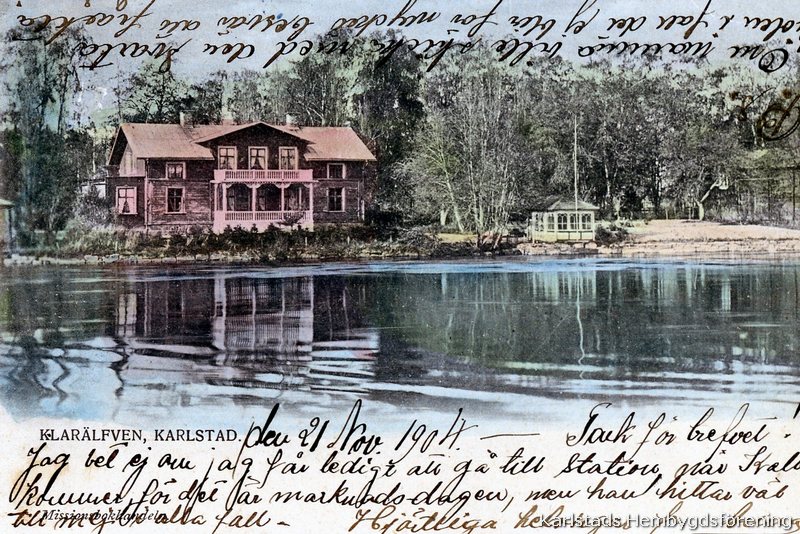 Om mamma ville skicka med den svarta
i fall den ej blir för mycket besvär att frakta
KLARÄLFVEN, KARLSTAD. den 21 Nov. 1904. — Tack för brefvet.
Jag vet ej om jag får ledigt att gå till Station, när
kommer, för det är marknads-dagen, men han hittar väl
till mig i alla fall. - Hjärtliga
Missionsbokhandeln
Karlstads Hembygdsförening